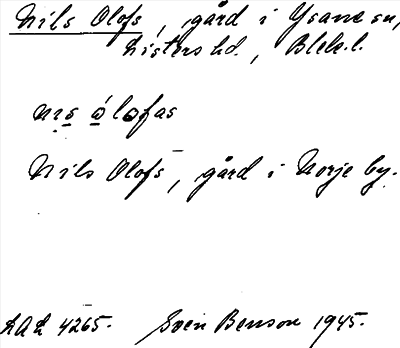 Nils Olofs, gård i Ysane sn,
Listers hd., Blek. l.
nɪs ólofas
Nils Olofs, gård i Norje by.
LAL 4265. Sven Benson 1945.